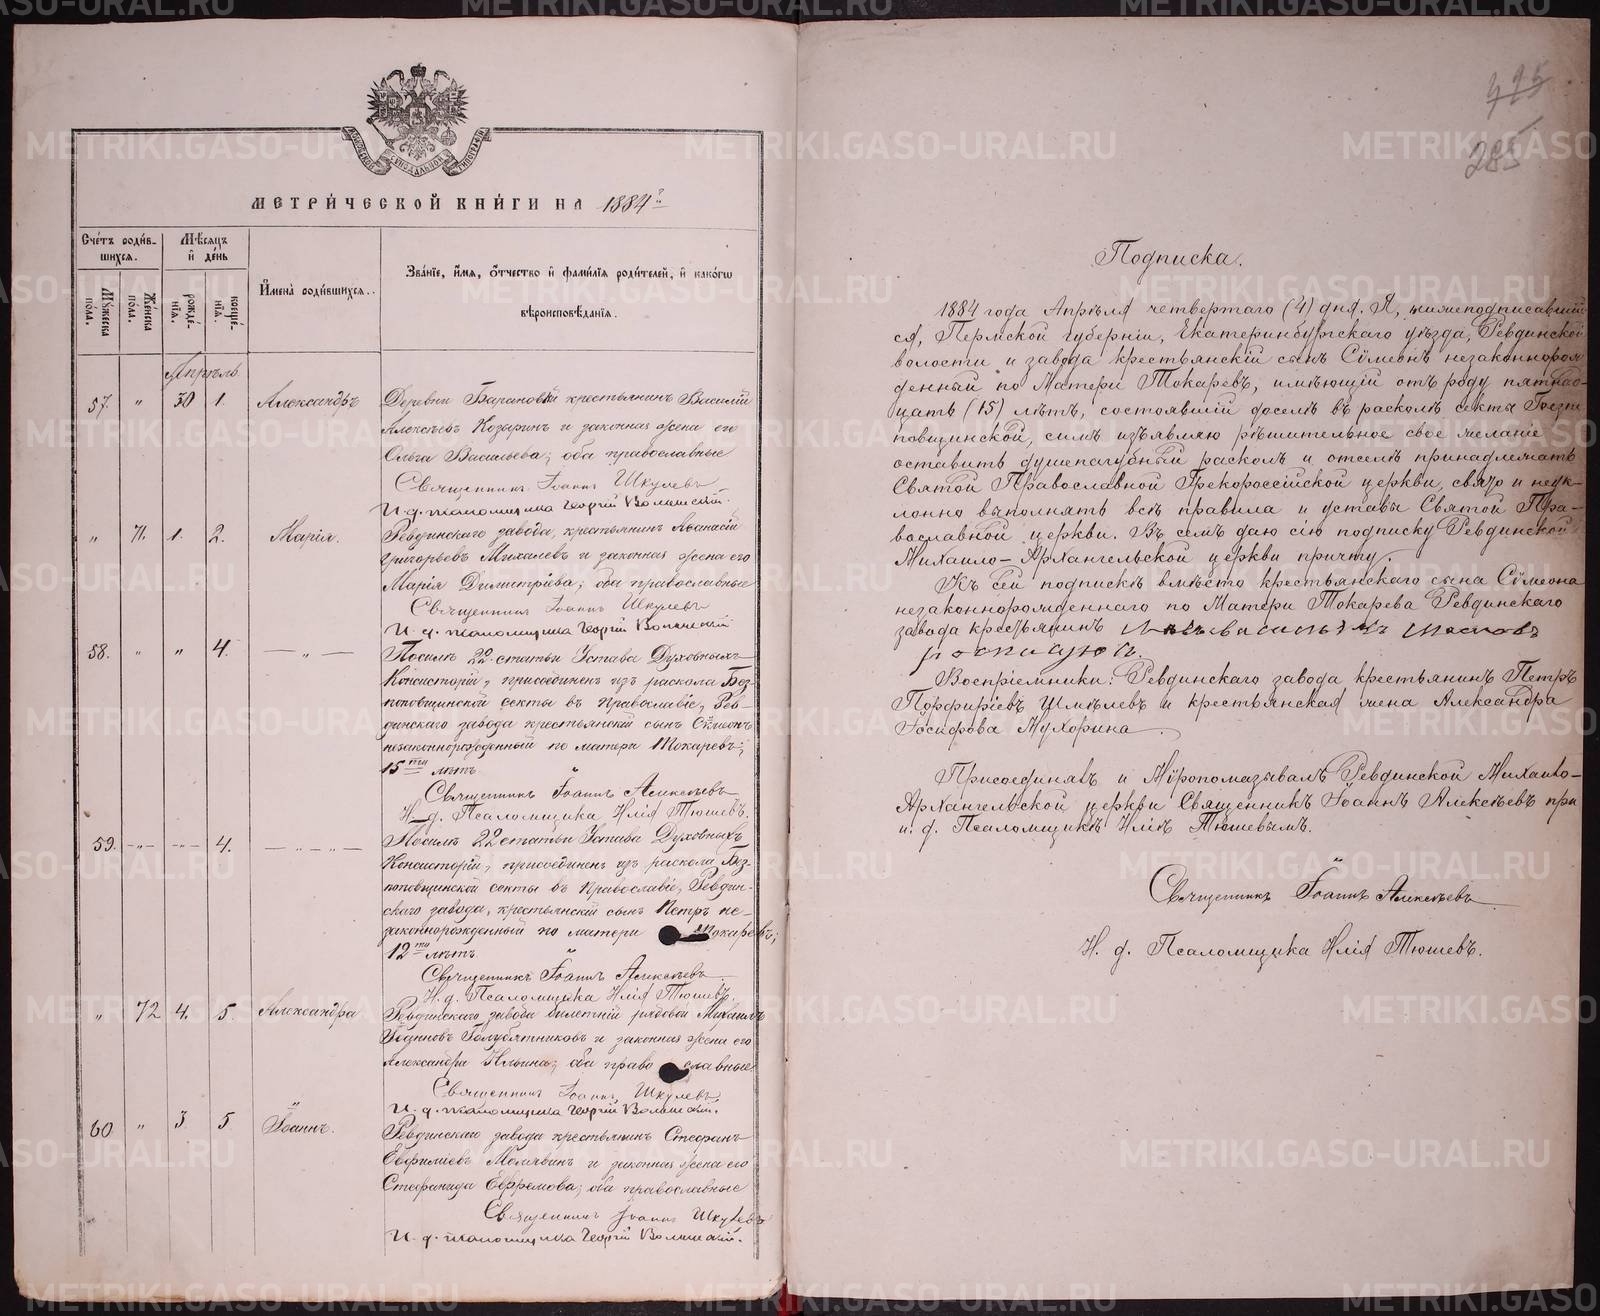 МЕТРИ́ЧЕСКОЙ КНИ́ГИ НА 1884 г.
Сче́тъ роди́в-
шихся.
Мѣсяцъ
и҆ де́нь
Мꙋ́жеска
по́ла.
Же́нска
по́ла.
рожде́-
нїѧ.
креще́-
нїѧ.
И҆мена̀ роди́вшихсѧ.
Зва́нїе, и҆́мѧ, ѻ҆́тчество и҆ фами́лїѧ роди́телей, и҆ како́гѡ
вѣроисповѣ́данїѧ.
Апрѣль
57. " 30 1. Александръ
Деревни Барановки крестьянинъ Василій
Алексѣевъ Козыринъ и законная жена его
Ольга Васильева; оба православные
Священникъ Іоаннъ Шкулевъ
И. д. псаломщика Георгій
" 71. 1. 2. Марія.
Ревдинскаго завода, крестьянинъ Аѳанасій
Григорьевъ Михалевъ и законная жена его
Марія Димитріева; оба православные
Священникъ Іоаннъ Шкулевъ
И. д. псаломщика Георгій
58. " " 4. — " —
Посилѣ 22 статьи Устава Духовныхъ
Консисторій, присоединенъ изъ раскола Без-
поповщинской секты въ Православіе, Рев-
динскаго завода крестьянскій сынъ Сѵмеонъ
незаконнорожденный по матери Токаревъ;
15ти лѣтъ.
Священникъ Іоаннъ Алексѣевъ
И. д. Псаломщика Илія Тюшевъ.
59. -"- -"- 4. — " — " —
Посилѣ 22 статьи Устава Духовныхъ
Консисторій, присоединенъ изъ раскола Без-
поповщинской секты въ Православіе, Ревдин-
скаго завода, крестьянскій сынъ Петръ не-
законнорожденный по матери Токаревъ;
12ти лѣтъ.
Священникъ Іоаннъ Алексѣевъ
И. д. Псаломщика Илія Тюшевъ.
" 72 4. 5. Александра
Ревдинскаго завода билетный рядовой Михаилъ
Іоанновъ Голубятниковъ и законная жена его
Александра Ильина; оба православные
Священникъ Іоаннъ Шкулевъ
И. д. псаломщика Георгій
60 " 3 5 Іоаннъ.
Ревдинскаго завода крестьянинъ Стефанъ
Евфиміевъ и законная жена его
Стефанида Ефремова; оба православные
Священникъ Іоаннъ Шкулевъ
И. д. псаломщика Георгій
285
Подписка.
1884 года Апрѣля четвертаго (4) дня. Я, нижеподписавшій-
ся, Пермской губерніи, Екатеринбургскаго уѣзда, Ревдинской
волости и завода крестьянскій сынъ Сѵмеонъ незаконнорож
денный по Матери Токаревъ, имѣющій отъ роду пятнад-
цать (15) лѣтъ, состоявшій доселѣ въ расколѣ секты Безпо
повщинской, симъ изъявляю рѣшительное свое желаніе
оставить душепагубный расколъ и отселѣ принадлежать
Святой Православной Грекороссійской церкви, свято и неук-
лонно выполнять всѣ правила и уставы Святой Пра-
вославной церкви. Въ семъ даю сію подписку Ревдинской
Михаило-Архангельской церкви причту.
Къ сей подпискѣ вмѣсто крестьянскаго сына Сѵмеона
незаконнорожденнаго по Матери Токарева Ревдинскаго
завода крестьянинъ
росписуюсь.
Воспріемники: Ревдинскаго завода крестьянинъ Петръ
Порфиріевъ Шмѣлевъ и крестьянская жена Александра
Іосифова Мухорина
Присоединялъ и Мѵропомазывалъ Ревдинской Михаило-
Архангельской церкви Священникъ Іоаннъ Алексѣевъ при
и. д. Псаломщикѣ Иліѣ Тюшевымъ.
Священникъ Іоаннъ Алексѣевъ
И. д. Псаломщика Илія Тюшевъ.
METRIKI.GASO-URAL.RU